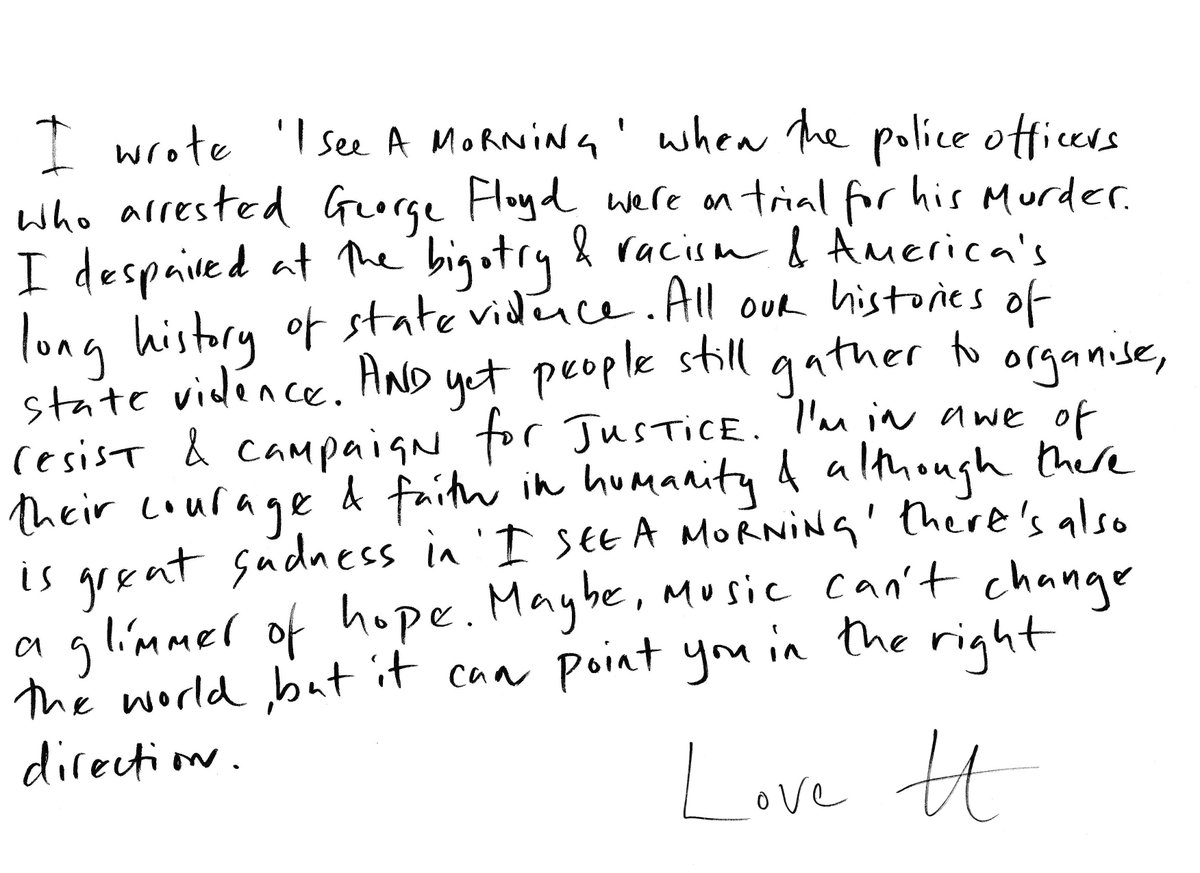 I wrote 'I see A MORNiNG' when the police officers
who arrested George Floyd were on trial for his Murder.
I despaired at the bigotry & racism & America's
long history of state violence. All our histories of
state violence. AND yet people still gather to organise,
resist & campaign for Justice. I'm in awe of
their courage & faith in humanity & although there
is great sadness in 'I SEE A MORNiNG' there's also
a glimmer of hope. Maybe, music can't change
the world, but it can point you in the right
direction.
Love